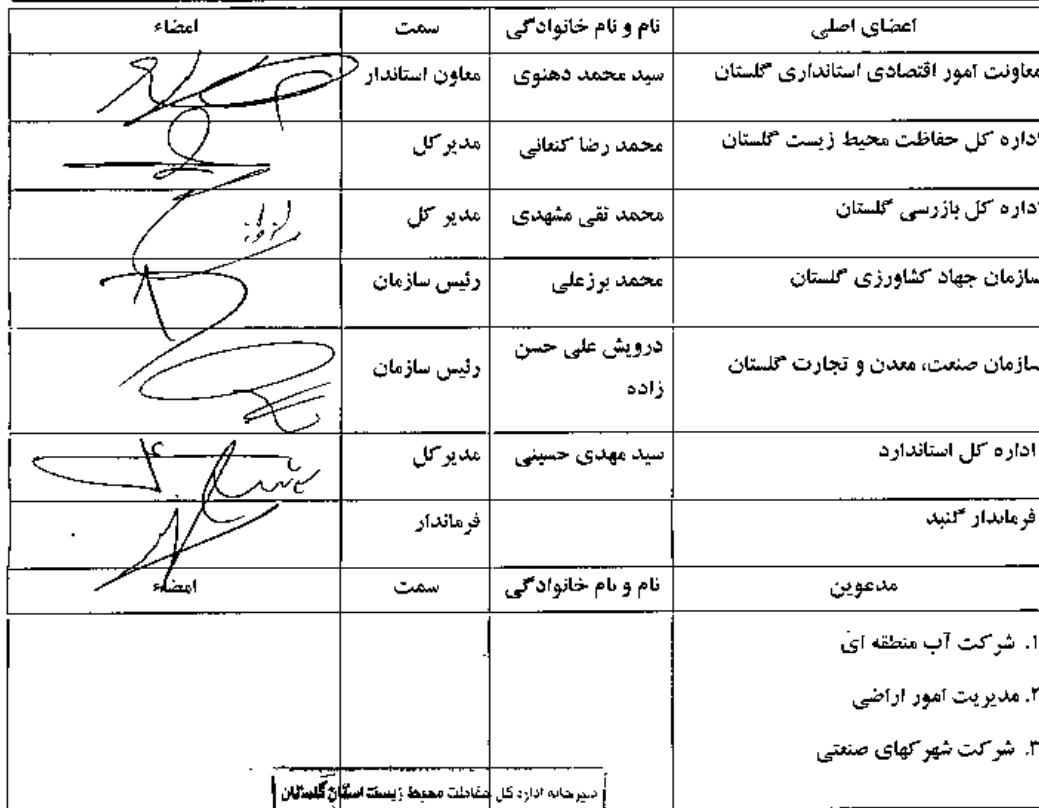 اعضای اصلی نام و نام خانوادگی سمت امضاء
معاونت امور اقتصادی استانداری گلستان سید محمد دهنوی معاون استاندار
اداره کل حفاظت محیط زیست گلستان محمد رضا کنعانی مدیر کل
اداره کل بازرسی گلستان محمد تقی مشهدی مدیر کل
سازمان جهاد کشاورزی گلستان محمد برزعلی رئیس سازمان
سازمان صنعت، معدن و تجارت گلستان درویش علی حسن رئیس سازمان
زاده
اداره کل استاندارد سید مهدی حسینی مدیر کل
فرماندار گنبد فرماندار
مدعوین نام و نام خانوادگی سمت امضاء
۱. شرکت آب منطقه ای
۲. مدیریت امور اراضی
۳. شرکت شهرکهای صنعتی
دبیرخانه اداره کل حفاظت محیط زیست استان گلستان